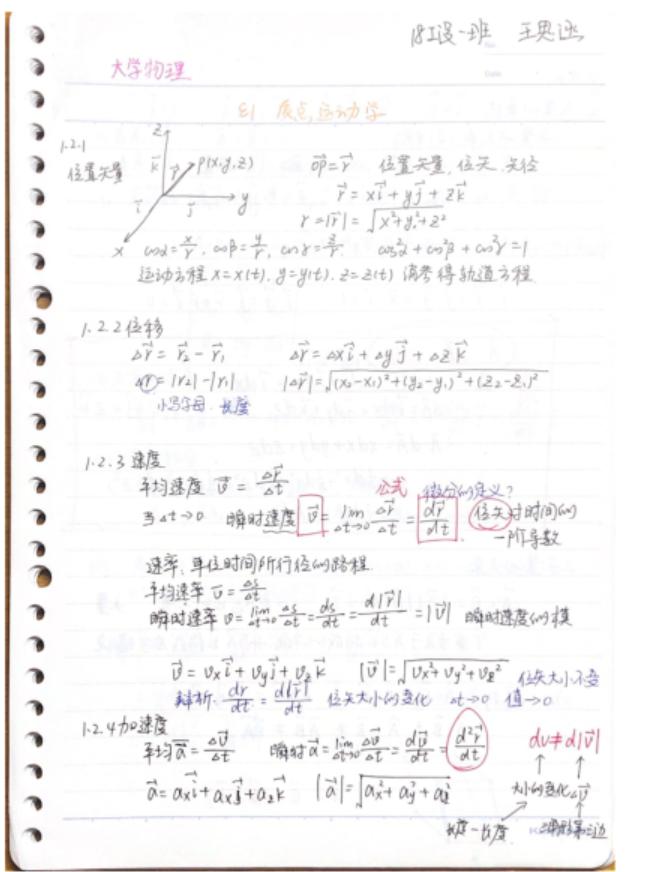 18工设一班 王思涵
大学物理
§1 质点运动学
1.2.1
位置矢量
z
k⃗ r⃗ P(x,y,z)
i⃗ j⃗ y
x
O⃗P=r⃗ 位置矢量,位矢,矢径
r⃗=xi⃗+yj⃗+zk⃗
r=|r⃗|=√(x²+y²+z²)
cosα=x/r, cosβ=y/r, cosγ=z/r. cos²α+cos²β+cos²γ=1
运动方程 x=x(t), y=y(t), z=z(t) 消去t得轨道方程
1.2.2位移
Δr⃗=r⃗₂-r⃗₁ Δr⃗=Δxi⃗+Δyj⃗+Δzk⃗
Δr=|r₂|-|r₁| |Δr⃗|=√((x₂-x₁)²+(y₂-y₁)²+(z₂-z₁)²)
小写字母·长度
1.2.3速度
平均速度 v⃗=Δr⃗/Δt
公式 微分的定义?
当Δt→0 瞬时速度 v⃗=lim Δt→0 Δr⃗/Δt=dr⃗/dt 位矢对时间的
一阶导数
速率,单位时间所行径的路程
平均速率 v=Δs/Δt
瞬时速率 v=lim Δt→0 Δs/Δt=ds/dt=d|r⃗|/dt=|v⃗| 瞬时速度的模
v⃗=vₓi⃗+vyj⃗+vzk⃗ |v⃗|=√(vₓ²+vy²+vz²)
位矢大小不变
辩析. dr/dt=d|r⃗|/dt 位矢大小的变化 Δt→0 值→0
1.2.4加速度
平均a⃗=Δv⃗/Δt 瞬时a⃗=lim Δt→0 Δv⃗/Δt=dv⃗/dt=d²r⃗/dt² dv≠d|v⃗|
a⃗=aₓi⃗+aₓj⃗+azk⃗ |a⃗|=√(aₓ²+ay²+az²) 大小的变化 Δv⃗
长度-长度 三角形第三边